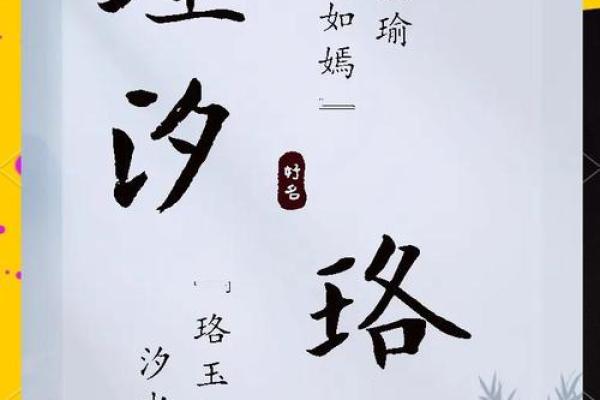 瑜
如嫣』
珞
好名
汐
『珞玉
汐